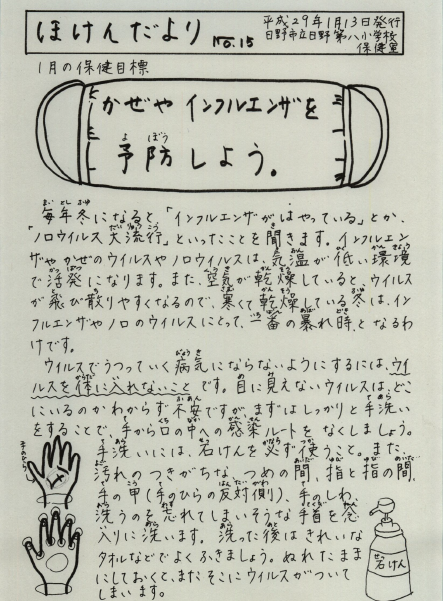 ほけんだより No.15
平成29年1月13日発行
日野市立日野第八小学校
保健室
1月の保健目標
かぜや インフルエンザを
予防しよう。
毎年冬になると、「インフルエンザがはやっている」とか、
「ノロウイルス大流行」といったことを聞きます。インフルエン
ザやかぜのウイルスやノロウイルスは、気温が低い環境
で活発になります。また、空気が乾燥していると、ウイルス
が飛び散りやすくなるので、寒くて乾燥している冬は、イン
フルエンザやノロのウイルスにとって、一番の暴れ時となるわ
けです。
ウイルスでうつっていく病気にならないようにするには、ウイ
ルスを体に入れないことです。目に見えないウイルスは、どこ
にいるのかわからず不安ですが、まずはしっかりと手洗い
をすることで、手から口の中への感染ルートをなくしましょう。
手洗いには、石けんを必ず使うこと。また、
汚れのつきがちな、つめの間、指と指の間、
手の甲(手のひらの反対側)、手のしわ、
洗うのを忘れてしまいそうな手首を念
入りに洗います。洗った後はきれいな
タオルなどでよくふきましょう。ぬれたまま
にしておくと、またそこにウイルスがついて
しまいます。
手のひら
石けん